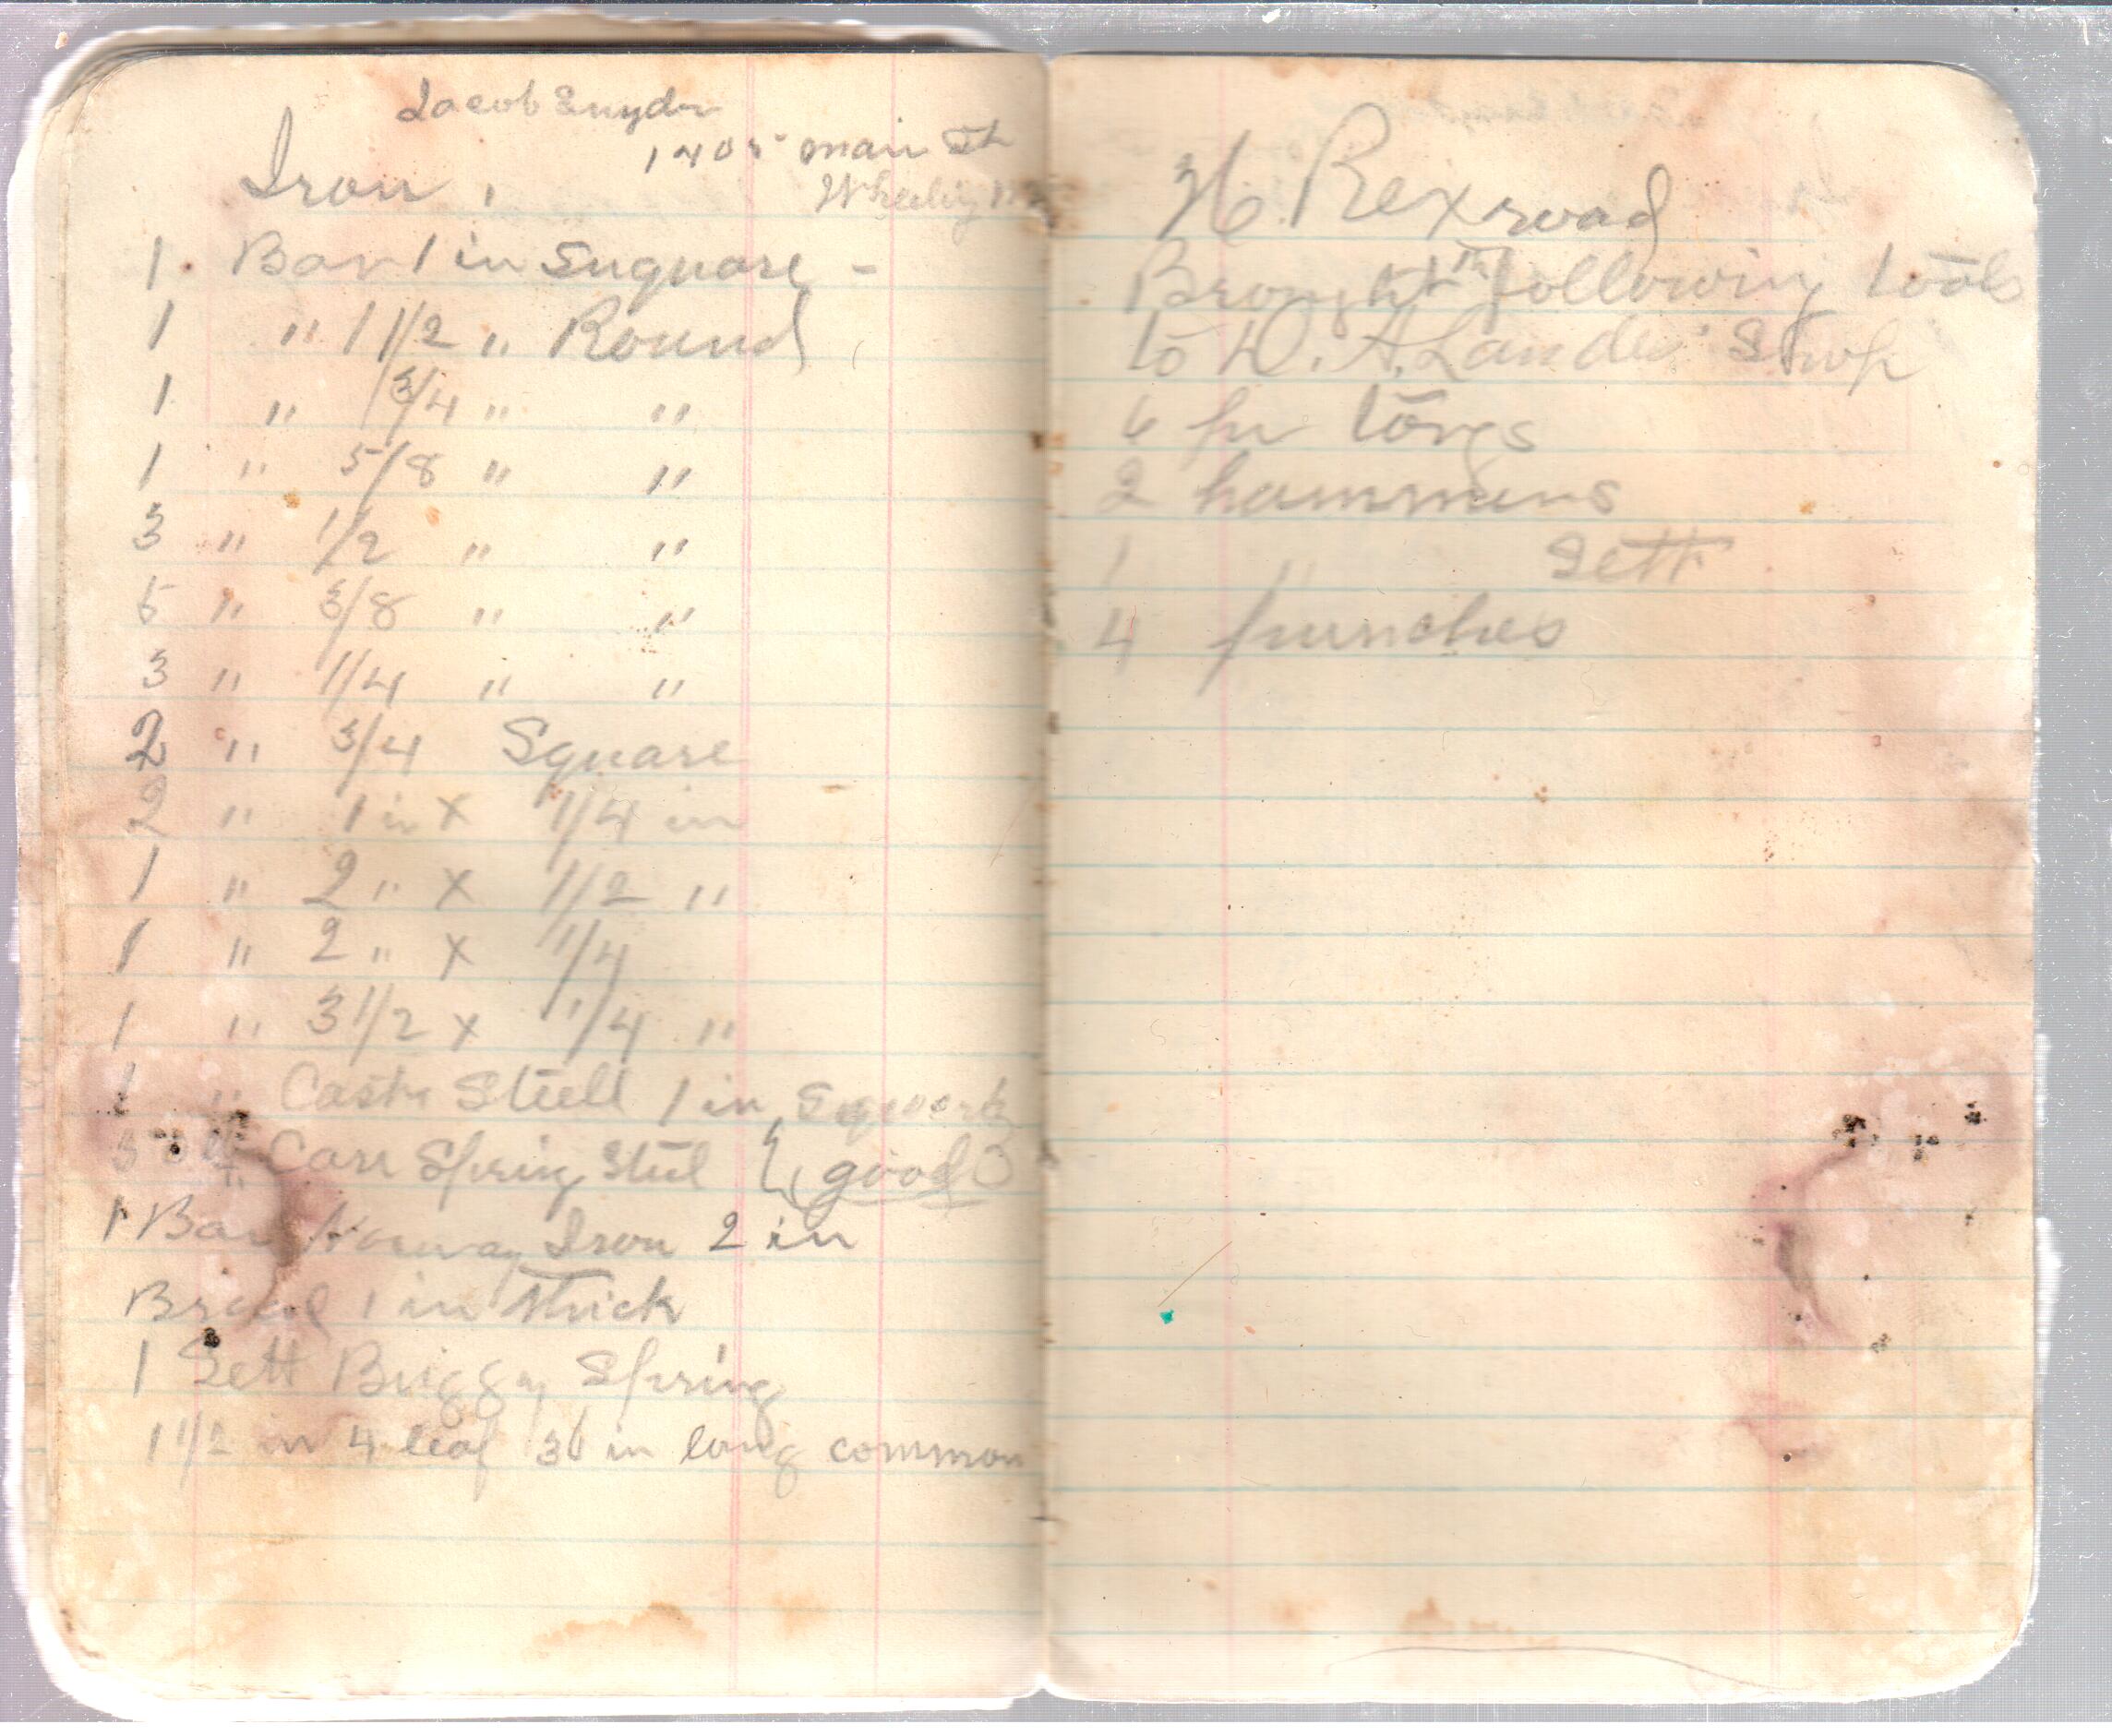 Jacob Snyder
1405 Main St
Iron, Wheeling
1. Bar 1 in Suquare -
1 " 1 1/2 " Round
1 " 1 3/4 " "
1 " 5/8 " "
3 " 1/2 " "
5 " 3/8 " "
3 " 1/4 " "
2 " 3/4 Square
2 " 1 in X 1/4 in
1 " 2 " X 1/2 "
1 " 2 " X 1/4
1 " 3 1/2 x 1/4 "
1 " Cast Steell 1 in Square
Carr Spring Steel good
1 Bar Norway Iron 2 in
Broad 1 in thick
1 Sett Buggy Spring
1 1/2 in 4 leaf 36 in long common
H. Rexroad
Brought the following tools
to W. A. Landes Shop
6 pr tongs
2 hammers
1 " Sett
4 punches